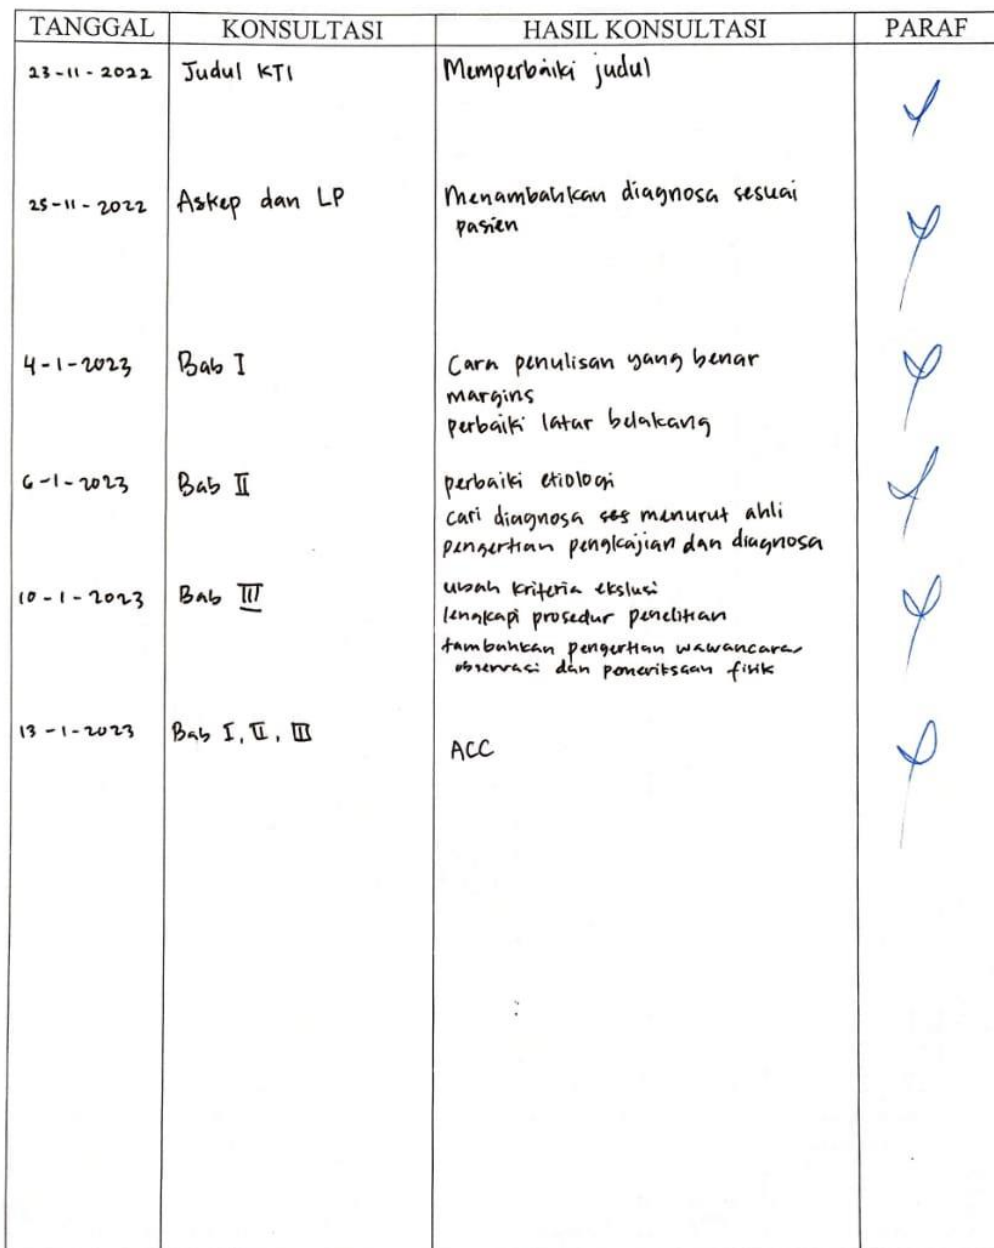 TANGGAL KONSULTASI HASIL KONSULTASI PARAF
23-11-2022 Judul KTI Memperbaiki judul
25-11-2022 Askep dan LP Menambahkan diagnosa sesuai
pasien
4-1-2023 Bab I Cara penulisan yang benar
margins
perbaiki latar belakang
6-1-2023 Bab II perbaiki etiologi
cari diagnosa menurut ahli
pengertian pengkajian dan diagnosa
10-1-2023 Bab III ubah kriteria ekslusi
lengkapi prosedur penelitian
tambahkan pengertian wawancara,
observasi dan pemeriksaan fisik
13-1-2023 Bab I, II, III
ACC